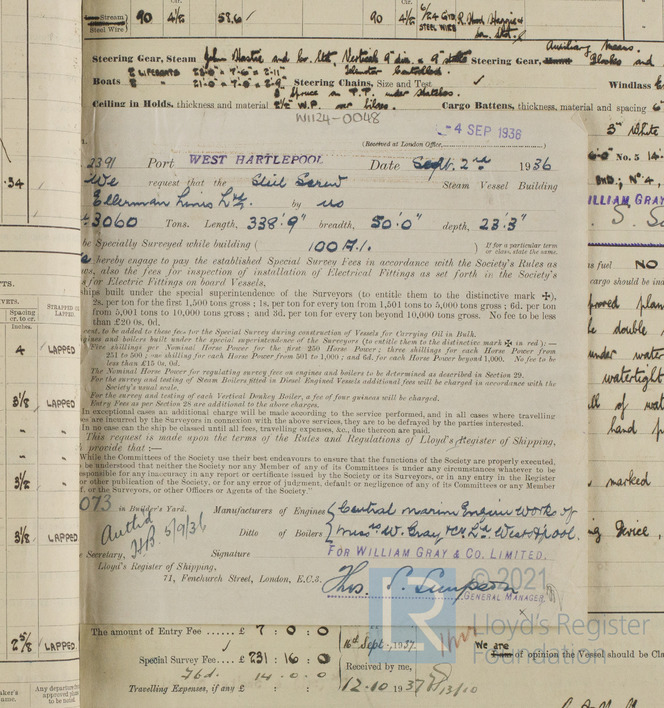 Stream
Steel Wire
90 4½ 58.6 90 4½
STEEL WIRE
Steering Gear, Steam John Hastie and Co. Ltd, Vertical 9" dia. x 9" stroke Steering Gear,
Boats 2 LIFEBOATS Steering Chains, Size and Test Windlass
Ceiling in Holds, thickness and material 2½" W.P. over Cargo Battens, thickness, material and spacing 6"
W1124-0048
- 4 SEP 1936
(Received at London Office,
2391 Port WEST HARTLEPOOL Date Sept. 2nd 1936
We request that the Steel Screw Steam Vessel Building
Ellerman Lines Ltd. by us
3060 Tons. Length, 338'.9" breadth, 50'.0" depth, 23'.3"
be Specially Surveyed while building ( 100 A.1. ) If for a particular term or class, state the same.
hereby engage to pay the established Special Survey Fees in accordance with the Society's Rules as
ws, also the fees for inspection of installation of Electrical Fittings as set forth in the Society's
s for Electric Fittings on board Vessels,
ships built under the special superintendence of the Surveyors (to entitle them to the distinctive mark ✠),
2s. per ton for the first 1,500 tons gross; 1s. per ton for every ton from 1,501 to 5,000 tons gross; 6d. per ton
from 5,001 to 10,000 tons gross; and 3d. per ton for every ton beyond 10,000 tons gross. No fee to be less
than £20 0s. 0d.
cent. to be added to these fees for the Special Survey during construction of Vessels for Carrying Oil in Bulk.
gines and boilers built under the special superintendence of the Surveyors (to entitle them to the distinctive mark ✠ in red):—
Five shillings per Nominal Horse Power for the first 250 Horse Power; three shillings for each Horse Power from
251 to 500; one shilling for each Horse Power from 501 to 1,000; and 6d. for each Horse Power beyond 1,000. No fee to be
less than £15 0s. 0d.
The Nominal Horse Power for regulating survey fee on engines and boilers to be determined as described in Section 29.
For the survey and testing of Steam Boilers fitted in Diesel Engined Vessels additional fees will be charged in accordance with the
Society's usual scale.
For the survey and testing of each Vertical Donkey Boiler, a fee of four guineas will be charged.
Entry Fees as per Section 28 are additional to the above charges.
In exceptional cases an additional charge will be made according to the service performed, and in all cases where travelling
es are incurred by the Surveyors in connection with the above services, they are to be defrayed by the parties interested.
In no case can the ship be classed until all fees, travelling expenses, &c., due thereon are paid.
This request is made upon the terms of the Rules and Regulations of Lloyd's Register of Shipping,
provide that:—
While the Committees of the Society use their best endeavours to ensure that the functions of the Society are properly executed,
be understood that neither the Society nor any Member of any of its Committees is under any circumstances whatever to be
esponsible for any inaccuracy in any report or certificate issued by the Society or its Surveyors, or in any entry in the Register
or other publication of the Society, or for any error of judgment, default or negligence of any of its Committees or any Member
f, or the Surveyors, or other Officers or Agents of the Society."
073 in Builder's Yard. Manufacturers of Engines Central Marine Engine Works of
Ditto of Boilers Messrs W. Gray & Co Ld West Hpool.
5/9/36
Secretary, Signature FOR WILLIAM GRAY & CO. LIMITED.
Lloyd's Register of Shipping,
71, Fenchurch Street, London, E.C.3.
Thos. S. Simpson
GENERAL MANAGER.
© 2021
Lloyd's Register
Foundation
The amount of Entry Fee ...... £ 7 : 0 : 0
16th Sept. 1937.
Special Survey Fee .... £ 231 : 16 : 0
Received by me,
14 . 0 . 0
Travelling Expenses, if any £ : :
12.10 1937 13/10
We are
of opinion the Vessel should be Cla
.34
TS.
VETS.
Spacing
cr. to cr.
Inches.
STRAPPED OR
LAPPED.
4 LAPPED
3⅛ LAPPED
3½
3⅛ LAPPED
2⅝ LAPPED.
aker's
me.
Any departure
approved plan
to be noted.
3" White
No. 5
No 4,
WILLIAM GRAY
as fuel NO
cargo should be ina
double
under water
watertight
hand
marked